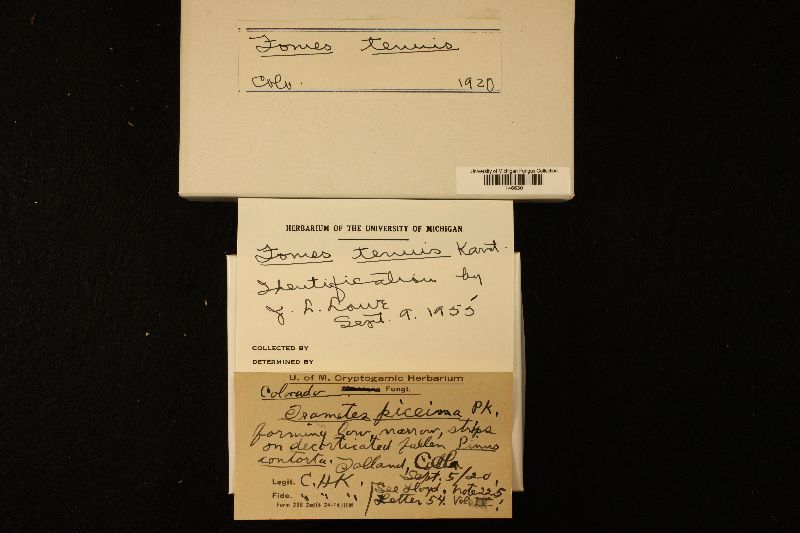 Fomes tenuis
Colo. 1920
University of Michigan Fungus Collection
HERBARIUM OF THE UNIVERSITY OF MICHIGAN
Fomes tenuis Karst.
Identification by
J. L. Lowe
Sept. 9. 1955
COLLECTED BY
DETERMINED BY
U. of M. Cryptogamic Herbarium
Colorado Fungi.
Trametes piceina PK.
forming low, narrow, strips
on decorticated fallen Pinus
contorta. Tolland, Colo
Sept. 5/20,
Legit. C.H.K.
See Lloyd, note 225,
Fide. " " "
Letter 54. Vol